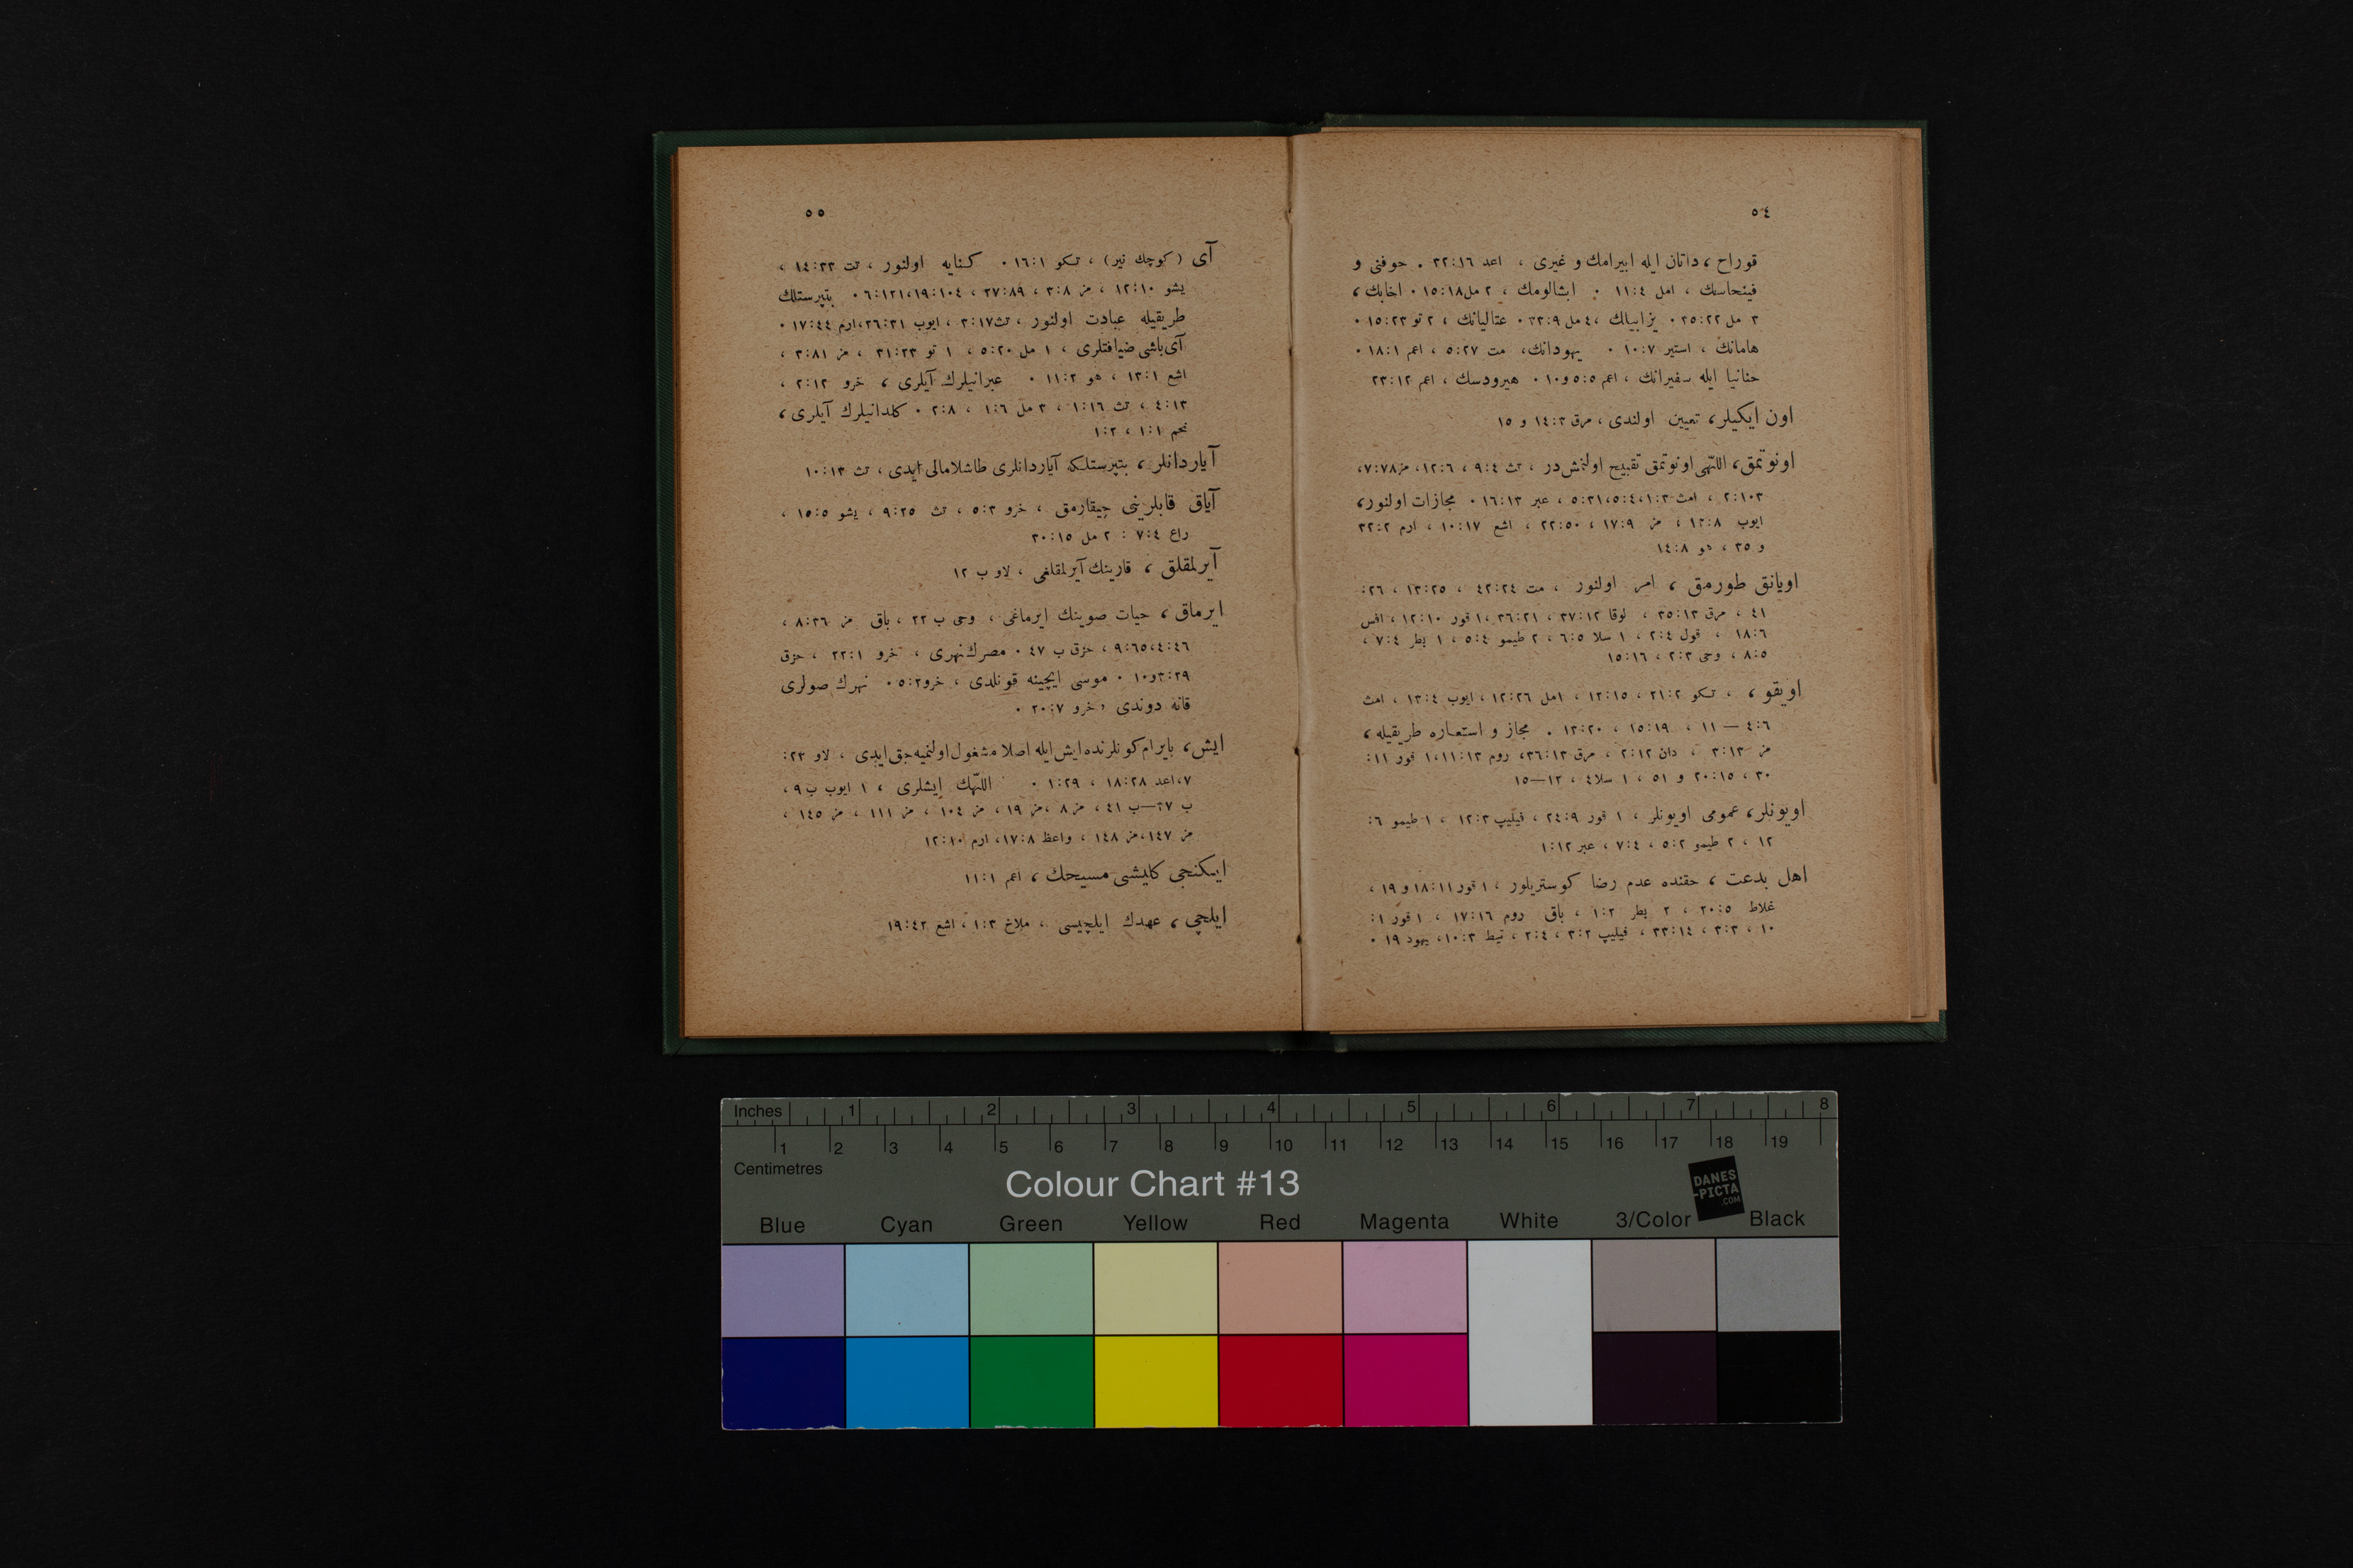 ٥٤
قوراح، داتان ايله ابيرامك و غيرى ، اعد ١٦:‏٣٢ . حوفنى و
فينحاسك ، امل ٤:‏١١ . ابشالومك ، ٢ مل ١٨:‏١٥ . اخابك،
٣ مل ٢٢:‏٣٥ . يزابيلك ، ٤ مل ٩:‏٣٣ . عتاليانك ، ٢ تو ٢٣:‏١٥ .
هامانك ، استير ٧:‏١٠ . يهودانك، مت ٢٧:‏٥ ، اعم ١:‏١٨ .
حنانيا ايله سفيرانك ، اعم ٥:‏٥ و ١٠ . هيرودسك ، اعم ١٢:‏٢٣
اون ايكيلر، تعيين اولندى ، مرق ٣:‏١٤ و ١٥
اونوتمق، اللّهى اونوتمق تقبيح اولنمش در ، تث ٤:‏٩ ، ٦:‏١٢، مز ٧٨:‏٧،
١٠٣:‏٢ ، امث ٣:‏١،٤:‏٥،٣١:‏٥ ، عبر ١٣:‏١٦ . مجازات اولنور،
ايوب ٨:‏١٣ ، مز ٩:‏١٧ ، ٥٠:‏٢٢ ، اشع ١٧:‏١٠ ، ارم ٢:‏٣٢
و ٣٥ ، هو ٨:‏١٤
اويانق طورمق ، امر اولنور ، مت ٢٤:‏٤٢ ، ٢٥:‏١٣ ، ٢٦:
٤١ ، مرق ١٣:‏٣٥ ، لوقا ١٢:‏٣٧ ، ٢١:‏٣٦ ،١ قور ١٠:‏١٢ ، افس
٦:‏١٨ ، قول ٤:‏٢ ، ١ سلا ٥:‏٦ ، ٢ طيمو ٤:‏٥ ، ١ بطر ٤:‏٧ ،
٥:‏٨ ، وحى ٣:‏٢ ، ١٦:‏١٥
اويقو ، ، تكو ٢:‏٢١ ، ١٥:‏١٢ ، ١مل ٢٦:‏١٢ ، ايوب ٤:‏١٣ ، امث
٦:‏٤ — ١١ ، ١٩:‏١٥ ، ٢٠:‏١٣ . مجاز و استعاره طريقيله،
مز ١٣:‏٣ ، دان ١٢:‏٢ ، مرق ١٣:‏٣٦، روم ١٣:‏١١،١ قور ١١:
٣٠ ، ١٥:‏٢٠ و ٥١ ، ١ سلا ٤ ، ١٣—١٥
اويونلر، عمومى اويونلر ، ١ قور ٩:‏٢٤ ، فيليپ ٣:‏١٢ ، ١ طيمو ٦:
١٢ ، ٢ طيمو ٢:‏٥ ، ٤:‏٧ ، عبر ١٢:‏١
اهل بدعت ، حقنده عدم رضا كوستريلور ، ١ قور ١١:‏١٨ و ١٩ ،
غلاط ٥:‏٢٠ ، ٢ بطر ٢:‏١ ، باق روم ١٦:‏١٧ ، ١ قور ١:
١٠ ، ٣:‏٣ ، ١٤:‏٣٣ ، فيليپ ٢:‏٣ ، ٤:‏٢ ، تيط ٣:‏١٠، يهود ١٩ .
٥٥
آى (كوچك نير) ، تكو ١:‏١٦ . كنايه اولنور ، تث ٣٣:‏١٤ ،
يشو ١٠:‏١٢ ، مز ٨:‏٣ ، ٨٩:‏٣٧ ، ١٠٤:‏١٩،١٢١:‏٦ . بتپرستلك
طريقيله عبادت اولنور ، تث ١٧:‏٣ ، ايوب ٣١:‏٢٦،ارم ٤٤:‏١٧ .
آى باشى ضيافتلرى ، ١ مل ٢٠:‏٥ ، ١ تو ٢٣:‏٣١ ، مز ٨١:‏٣ ،
اشع ١:‏١٣ ، هو ٢:‏١١ . عبرانيلرك آيلرى ، خرو ١٢:‏٢ ،
١٣:‏٤ ، تث ١٦:‏١ ، ٣ مل ٦:‏١ ، ٨:‏٢ . كلدانيلرك آيلرى ،
نحم ١:‏١ ، ٢:‏١
آياردانلر ، بتپرستلكه آياردانلرى طاشلامالى ايدى ، تث ١٣:‏١٠
آياق قابلرينى چيقارمق ، خرو ٣:‏٥ ، تث ٢٥:‏٩ ، يشو ٥:‏١٥ ،
راع ٤:‏٧ : ٢ مل ١٥:‏٣٠
آيرلمقلق ، قارينك آيرلمقلغى ، لاو ب ١٢
ايرماق ، حيات صوينك ايرماغى ، وحى ب ٢٢ ، باق مز ٣٦:‏٨ ،
٤٦:‏٤،٦٥:‏٩ ، حزق ب ٤٧ . مصرك نهرى ، خرو ١:‏٢٢ ، حزق
٢٩:‏٣و١٠ . موسى ايچينه قونلدى ، خرو ٢:‏٥ . نهرك صولرى
قانه دوندى ، خرو ٧:‏٢٠ .
ايش، بايرام كونلرنده ايش ايله اصلا مشغول اولنميه جق ايدى ، لاو ٢٣:
٧،اعد ٢٨:‏١٨ ، ٢٩:‏١ . اللّهك ايشلرى ، ١ ايوب ب ٩ ،
ب ٣٧—ب ٤١ ، مز ٨ ،مز ١٩ ، مز ١٠٤ ، مز ١١١ ، مز ١٤٥ ،
مز ١٤٧،مز ١٤٨ ، واعظ ٨:‏١٧، ارم ١٠:‏١٢
ايكنجى كليشى مسيحك ، اعم ١:‏١١
ايلچى ، عهدك ايلچيسى ، ملاخ ٣:‏١ ، اشع ٤٢:‏١٩
Inches 1 2 3 4 5 6 7 8
1 2 3 4 5 6 7 8 9 10 11 12 13 14 15 16 17 18 19
Centimetres
Colour Chart #13
DANES
-PICTA
.COM
Blue Cyan Green Yellow Red Magenta White 3/Color Black